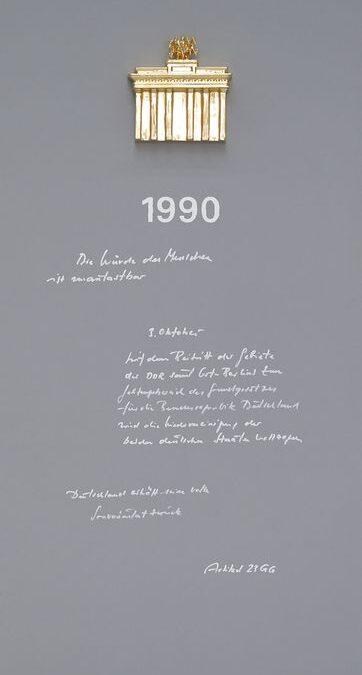 1990
Die Würde des Menschen
ist unantastbar
3. Oktober
Mit dem Beitritt der Gebiete
der DDR samt Ost-Berlins zum
Geltungsbereich des Grundgesetzes
für die Bundesrepublik Deutschland
wird die Wiedervereinigung der
beiden deutschen Staaten vollzogen
Deutschland erhält seine volle
Souveränität zurück
Artikel 23 GG